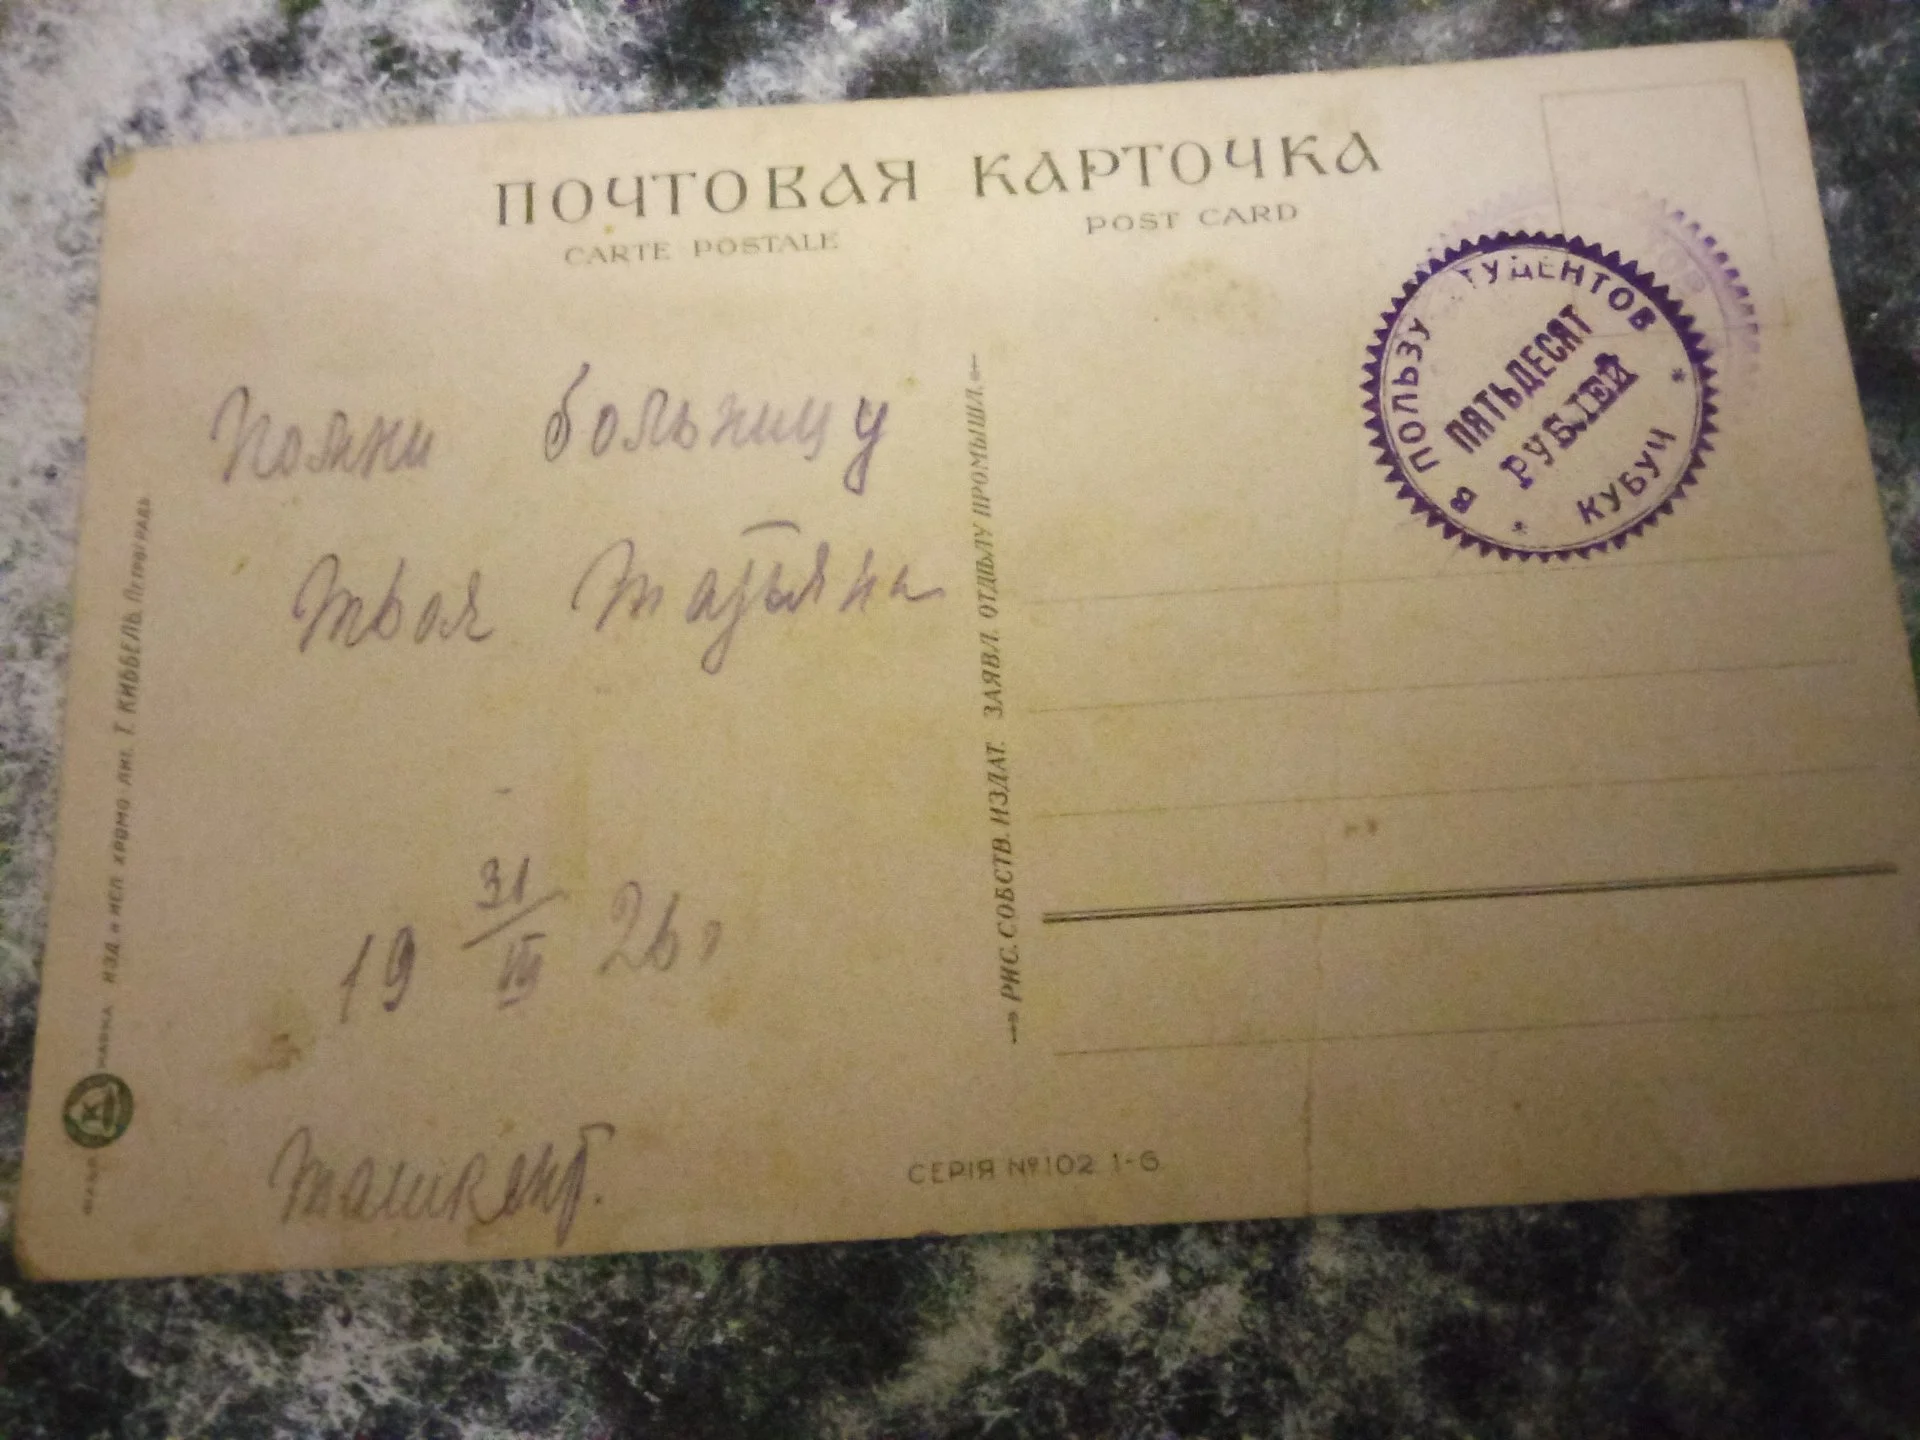 ПОЧТОВАЯ КАРТОЧКА
CARTE POSTALE POST CARD
В ПОЛЬЗУ СТУДЕНТОВ
ПЯТЬДЕСЯТ
РУБЛЕЙ
* КУБУЧ *
Помни больницу
твоя Татьяна
19 31/III 26 г
Ташкент.
МАРКА ИЗД. и ИСП. ХРОМО-ЛИТ. Т. КИББЕЛЬ ПЕТРОГРАДЪ
РИС. СОБСТВ. ИЗДАТ. ЗАЯВЛ. ОТДѢЛУ ПРОМЫШЛ.
СЕРІЯ №102 1-6